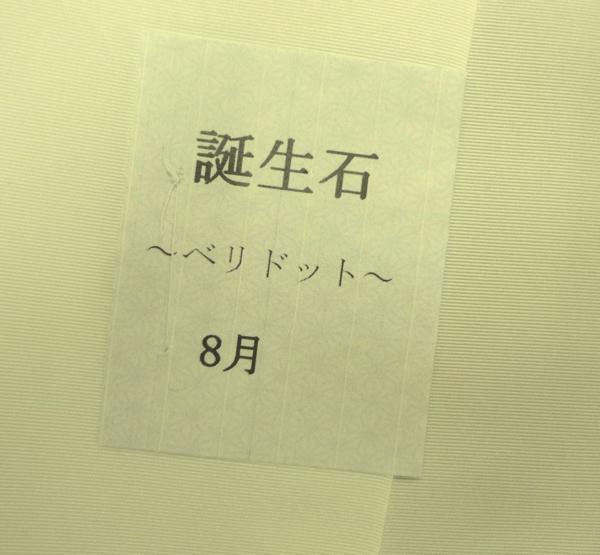 誕生石
～ベリドット～
8月